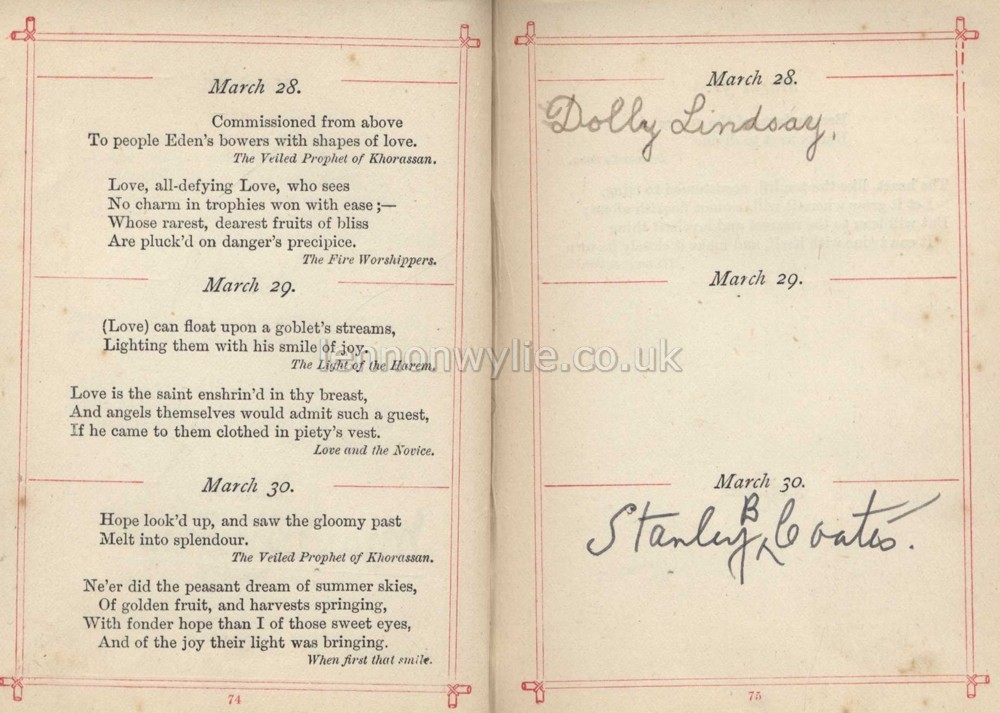 March 28.
Commissioned from above
To people Eden's bowers with shapes of love.
The Veiled Prophet of Khorassan.
Love, all-defying Love, who sees
No charm in trophies won with ease ;—
Whose rarest, dearest fruits of bliss
Are pluck'd on danger's precipice.
The Fire Worshippers.
March 29.
(Love) can float upon a goblet's streams,
Lighting them with his smile of joy.
The Light of the Harem.
Love is the saint enshrin'd in thy breast,
And angels themselves would admit such a guest,
If he came to them clothed in piety's vest.
Love and the Novice.
March 30.
Hope look'd up, and saw the gloomy past
Melt into splendour.
The Veiled Prophet of Khorassan.
Ne'er did the peasant dream of summer skies,
Of golden fruit, and harvests springing,
With fonder hope than I of those sweet eyes,
And of the joy their light was bringing.
When first that smile.
74
March 28.
Dolly Lindsay.
March 29.
March 30.
Stanley B Coates.
75
lennonwylie.co.uk